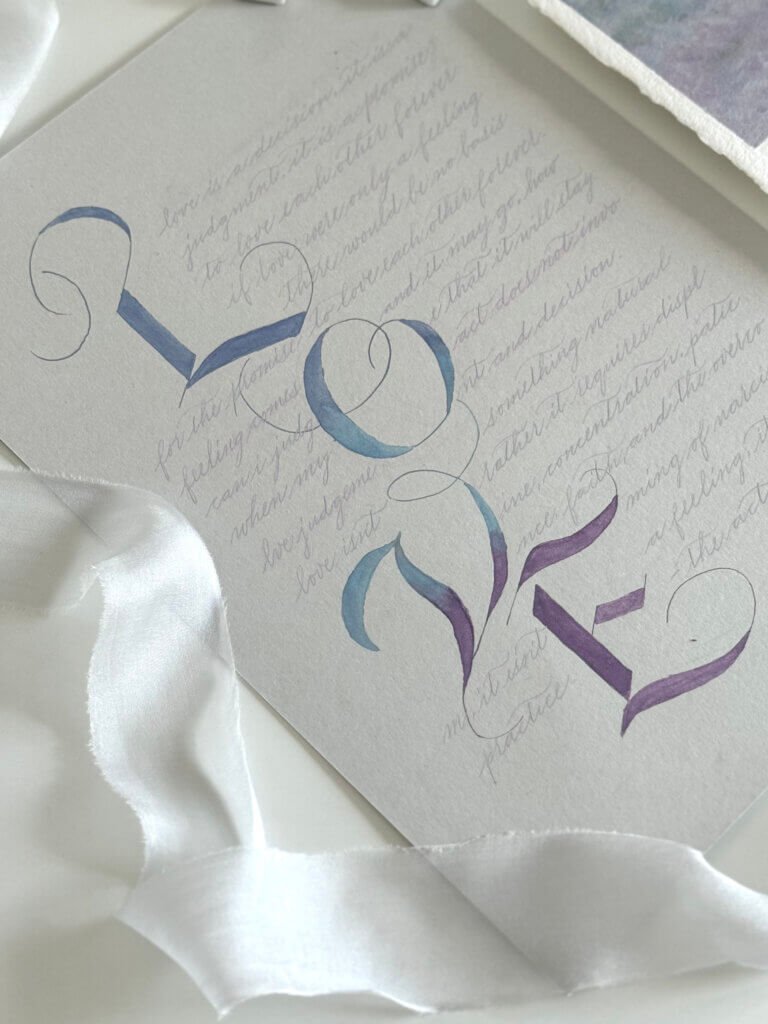 LOVE
love is a decision, it is a
judgment, it is a promise;
to love each other forever
if love were only a feeling
there would be no basis
for the promise to love each other forever.
feeling comes and it may go. how
can i judge that it will stay
when my act does not invo
lve judgement and decision.
love isn't something natural
rather it requires displ
ine, concentration, patie
nce, faith, and the overco
ming of narcis
it isn't a feeling, it
practice.